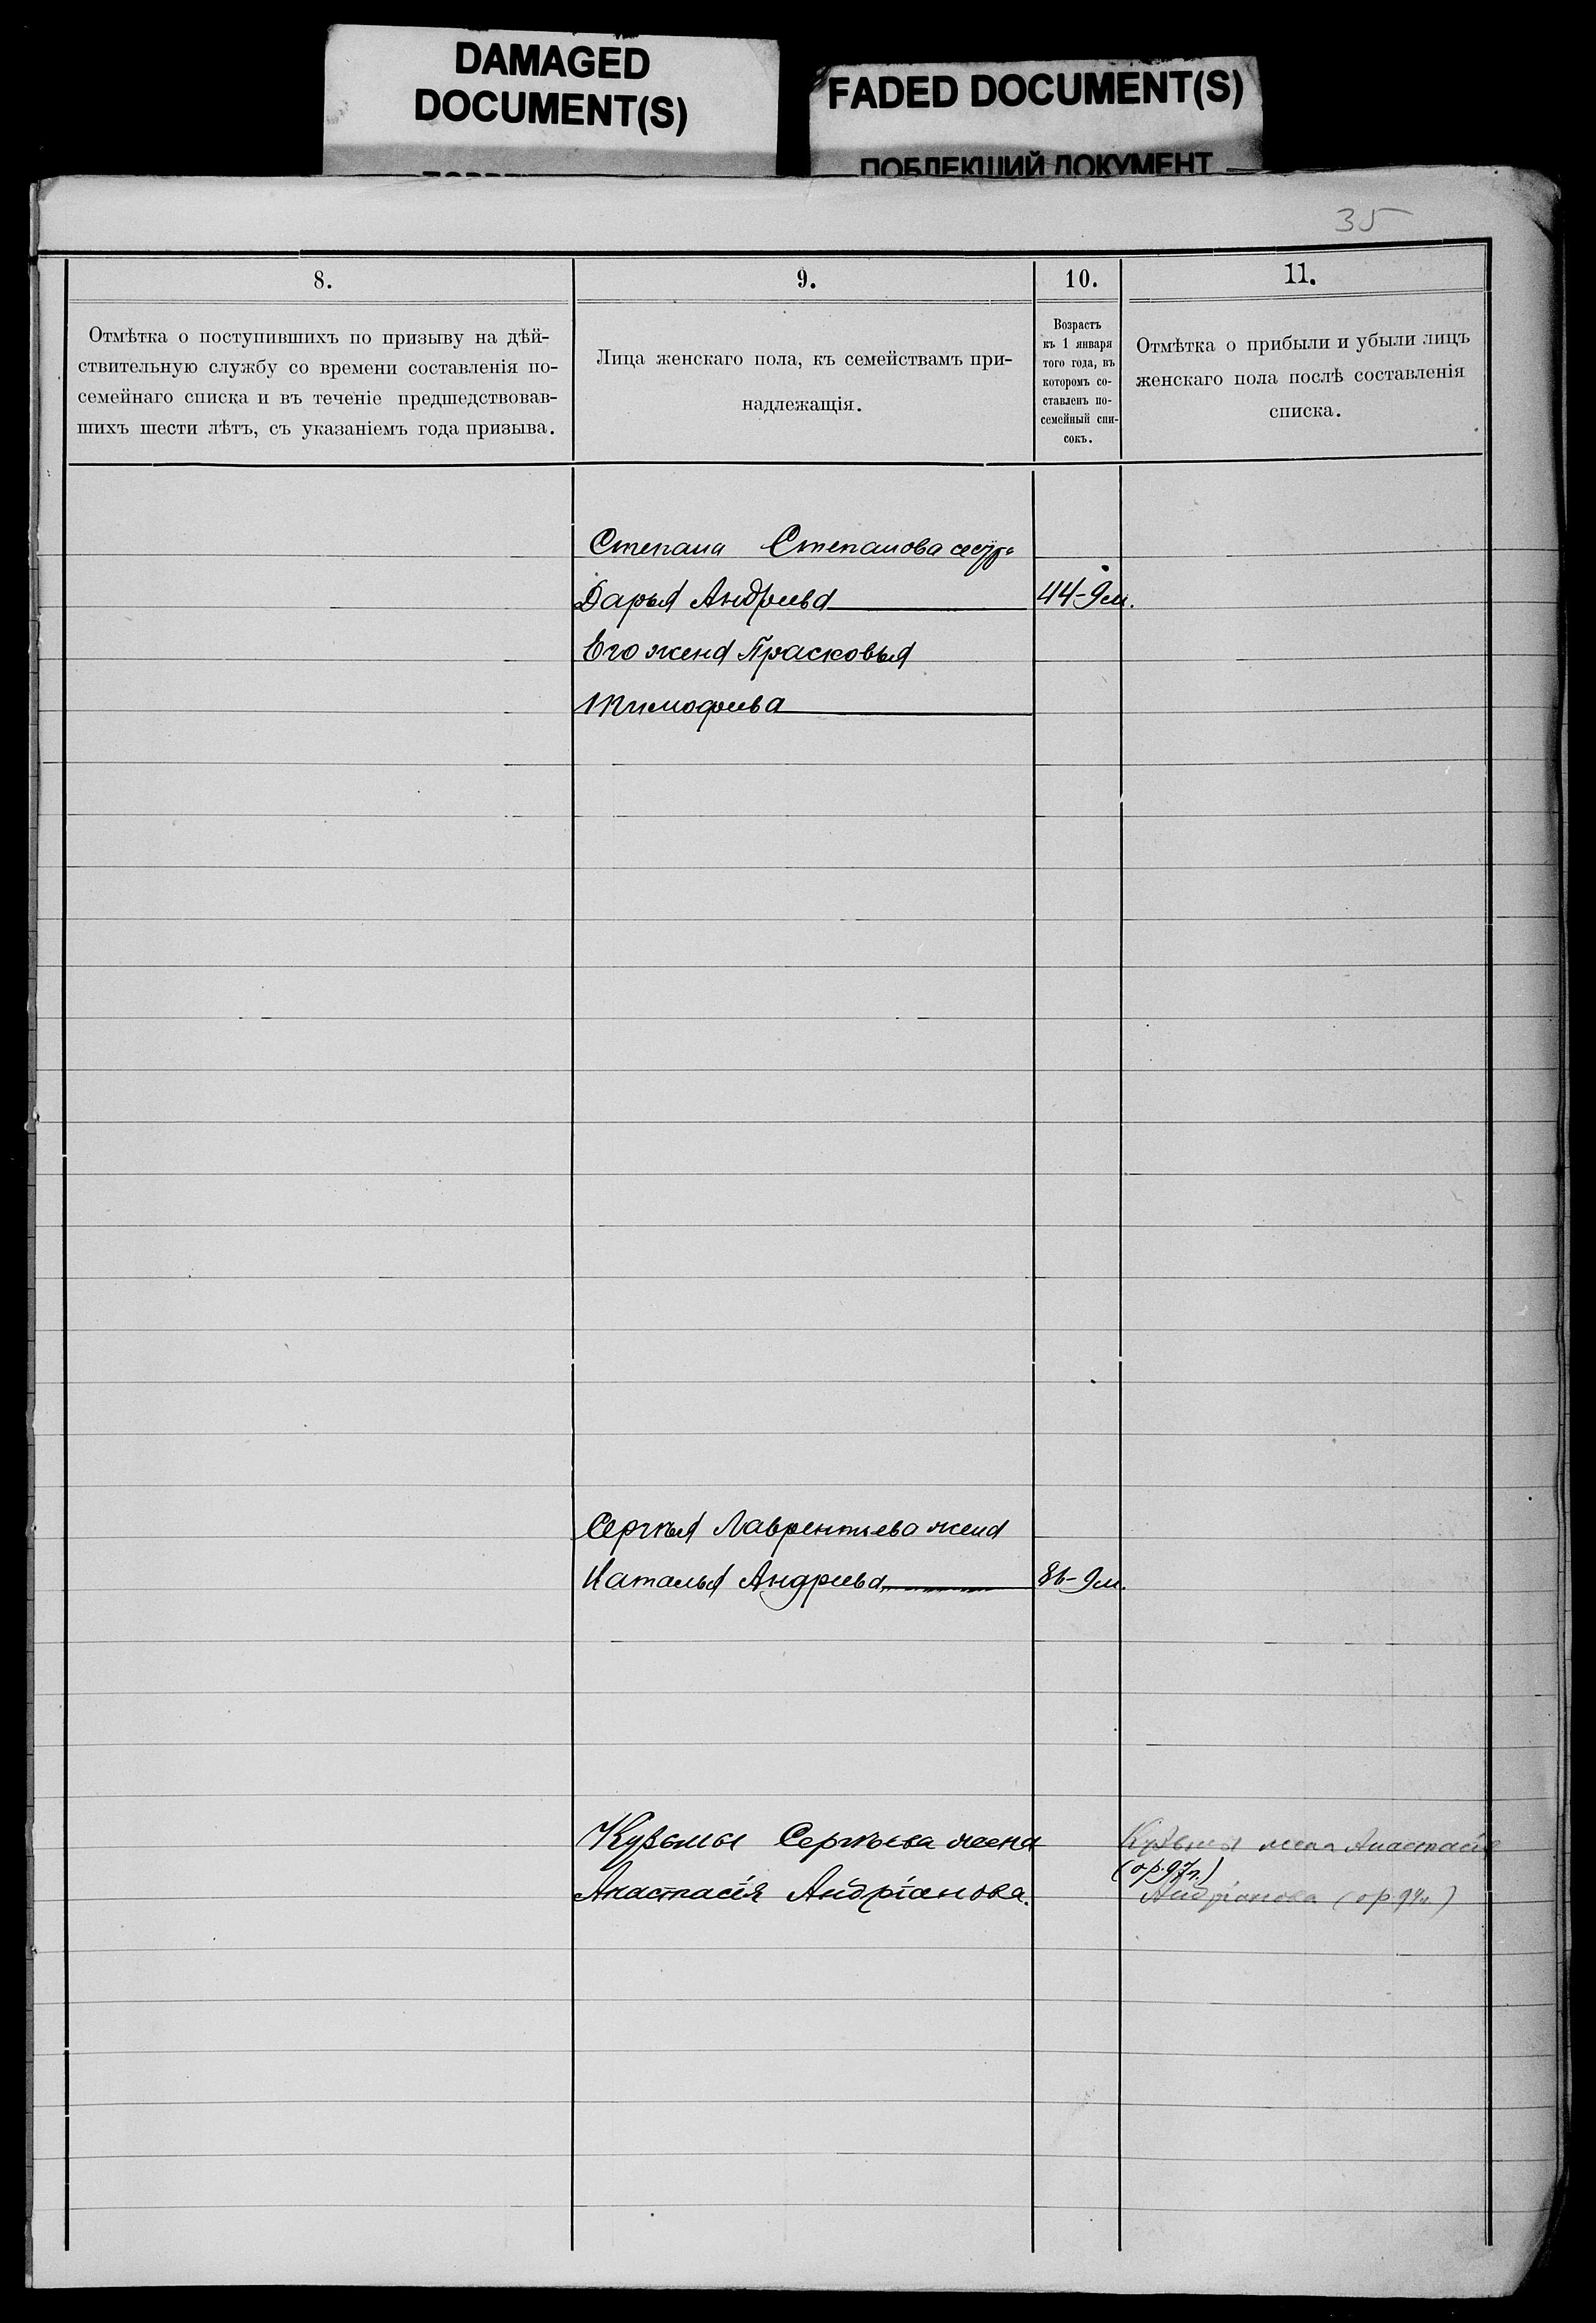 DAMAGED
DOCUMENT(S)
FADED DOCUMENT(S)
ПОБЛЕКШИЙ ДОКУМЕНТ
35
8.
Отмѣтка о поступившихъ по призыву на дѣй-
ствительную службу со времени составленія по-
семейнаго списка и въ теченіе предшедствовав-
шихъ шести лѣтъ, съ указаніемъ года призыва.
9.
Лица женскаго пола, къ семействамъ при-
надлежащія.
10.
Возрастъ
къ 1 января
того года, въ
которомъ со-
ставленъ по-
семейный спи-
сокъ.
11.
Отмѣтка о прибыли и убыли лицъ
женскаго пола послѣ составленія
списка.
Степана Степанова
Дарья Андреева 44-9м.
Его жена Прасковья
Тимофеева
Сергѣя Лаврентьева жена
Наталья Андреева 86-9м.
Кузьмы Сергѣева жена
Анастасія Андріанова.
Кузьмы жена Анастасія
(ор. 97г.)
Андріанова (ор. 97г.)